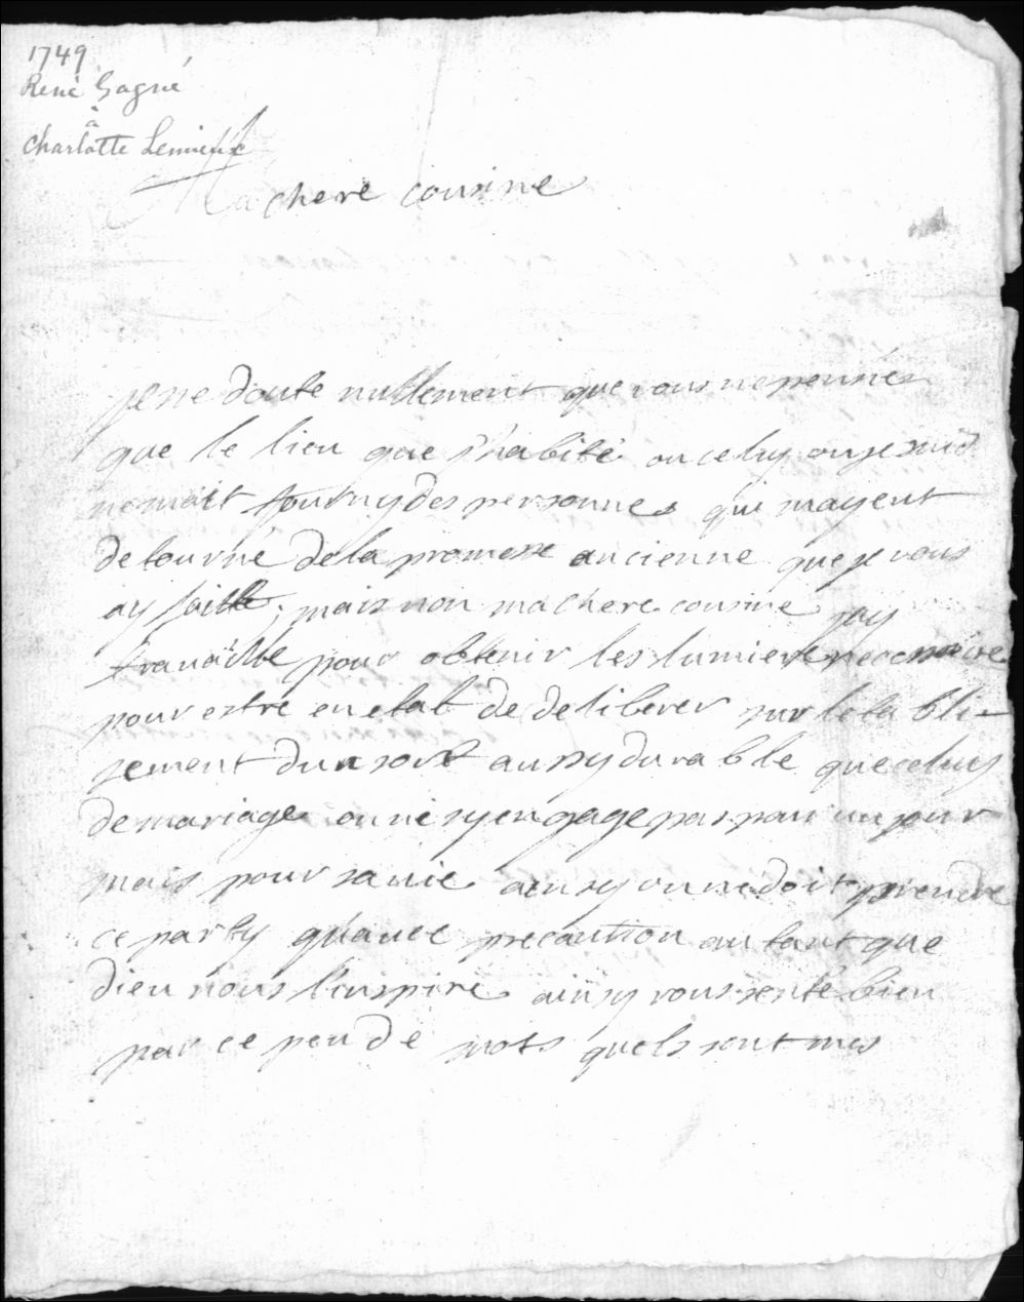 1749
René Gagné
à
Charlotte Lemieux
Ma chere cousine
je ne doute nullement que vous ne pensiés
que le lieu que j'habite ou celuy ou je suis
ne mait fourny des personnes qui mayent
detourné de la promesse ancienne que je vous
ay faitte, mais non ma chere cousine jay
travaillé pour obtenir les lumiere necessaire
pour estre en etat de deliberer sur letablis-
sement dun sort aussy durable que celuy
de mariage on ne sy engage pas pour un jour
mais pour sa vie ainsy on ne doit prendre
ce party qu'avec precaution autant que
dieu nous l'inspire ainsy vous senté bien
par ce peu de mots quels sont mes